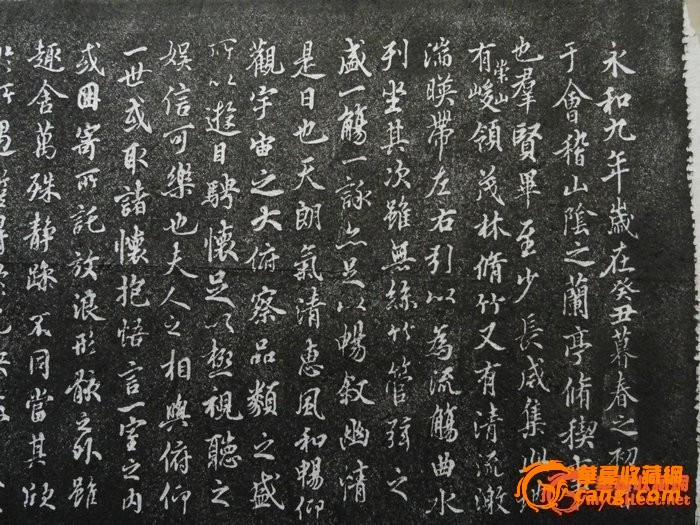 永和九年歲在癸丑暮春之初
于會稽山陰之蘭亭脩稧事
也羣賢畢至少長咸集此地
有崇山峻領茂林脩竹又有清流激
湍暎帶左右引以為流觴曲水
列坐其次雖無絲竹管弦之
盛一觴一詠亦足以暢敘幽情
是日也天朗氣清惠風和暢仰
觀宇宙之大俯察品類之盛
所以遊目騁懷足以極視聽之
娛信可樂也夫人之相與俯仰
一世或取諸懷抱悟言一室之內
或因寄所託放浪形骸之外雖
趣舍萬殊靜躁不同當其欣
於所遇
華夏收藏網
cang.com